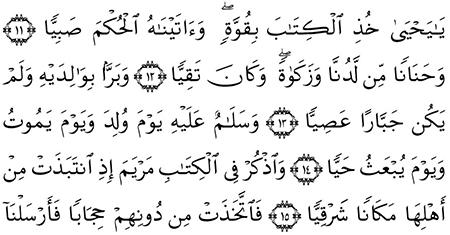 يَـٰيَحۡيَىٰ خُذِ ٱلۡكِتَـٰبَ بِقُوَّةٖۖ وَءَاتَيۡنَـٰهُ ٱلۡحُكۡمَ صَبِيّٗا ١١
وَحَنَانٗا مِّن لَّدُنَّا وَزَكَوٰةٗۖ وَكَانَ تَقِيّٗا ١٢ وَبَرَّۢا بِوَٰلِدَيۡهِ وَلَمۡ
يَكُن جَبَّارًا عَصِيّٗا ١٣ وَسَلَـٰمٌ عَلَيۡهِ يَوۡمَ وُلِدَ وَيَوۡمَ يَمُوتُ
وَيَوۡمَ يُبۡعَثُ حَيّٗا ١٤ وَٱذۡكُرۡ فِي ٱلۡكِتَـٰبِ مَرۡيَمَ إِذِ ٱنتَبَذَتۡ مِنۡ
أَهۡلِهَا مَكَانٗا شَرۡقِيّٗا ١٥ فَٱتَّخَذَتۡ مِن دُونِهِمۡ حِجَابٗا فَأَرۡسَلۡنَآ